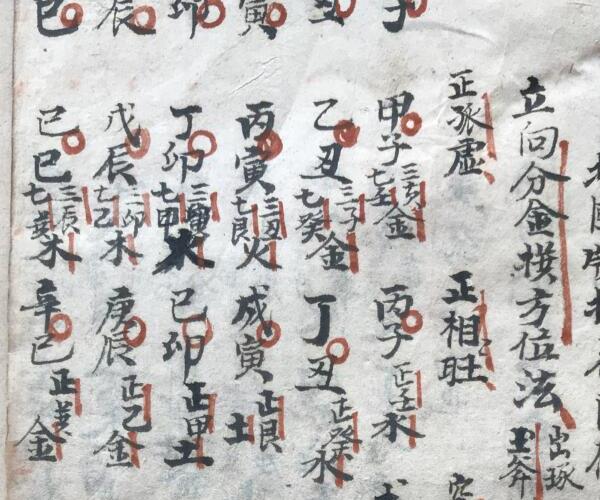 立向分金橫方位法
正孤虛 正相旺
子 甲子三亥七壬金 丙子正壬水
丑 乙丑三子七癸金 丁丑正癸水
寅 丙寅三丑七艮火 戊寅正艮土
卯 丁卯三寅七甲火 己卯正甲土
辰 戊辰三卯七乙木 庚辰正乙金
巳 己巳三辰七巽木 辛巳正巽金